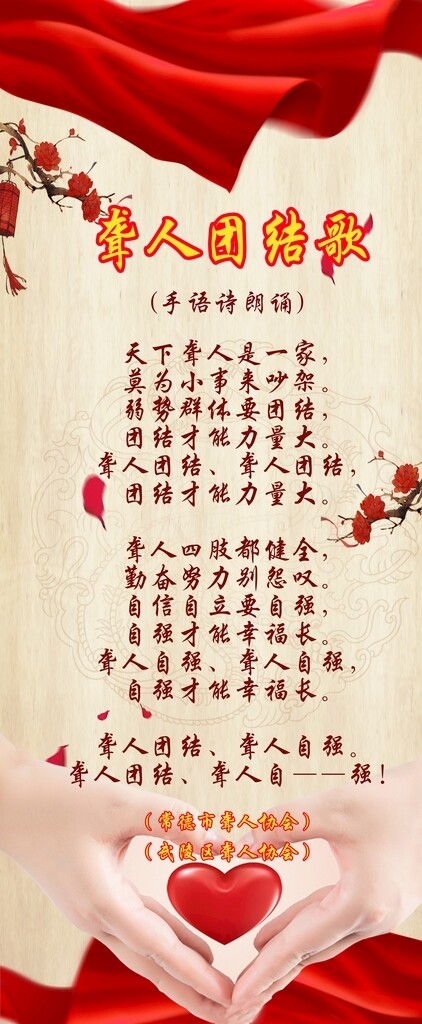 聋人团结歌
(手语诗朗诵)
天下聋人是一家，
莫为小事来吵架。
弱势群体要团结，
团结才能力量大。
聋人团结、聋人团结，
团结才能力量大。
聋人四肢都健全，
勤奋努力别怨叹。
自信自立要自强，
自强才能幸福长。
聋人自强、聋人自强，
自强才能幸福长。
聋人团结、聋人自强。
聋人团结、聋人自——强！
(常德市聋人协会)
(武陵区聋人协会)